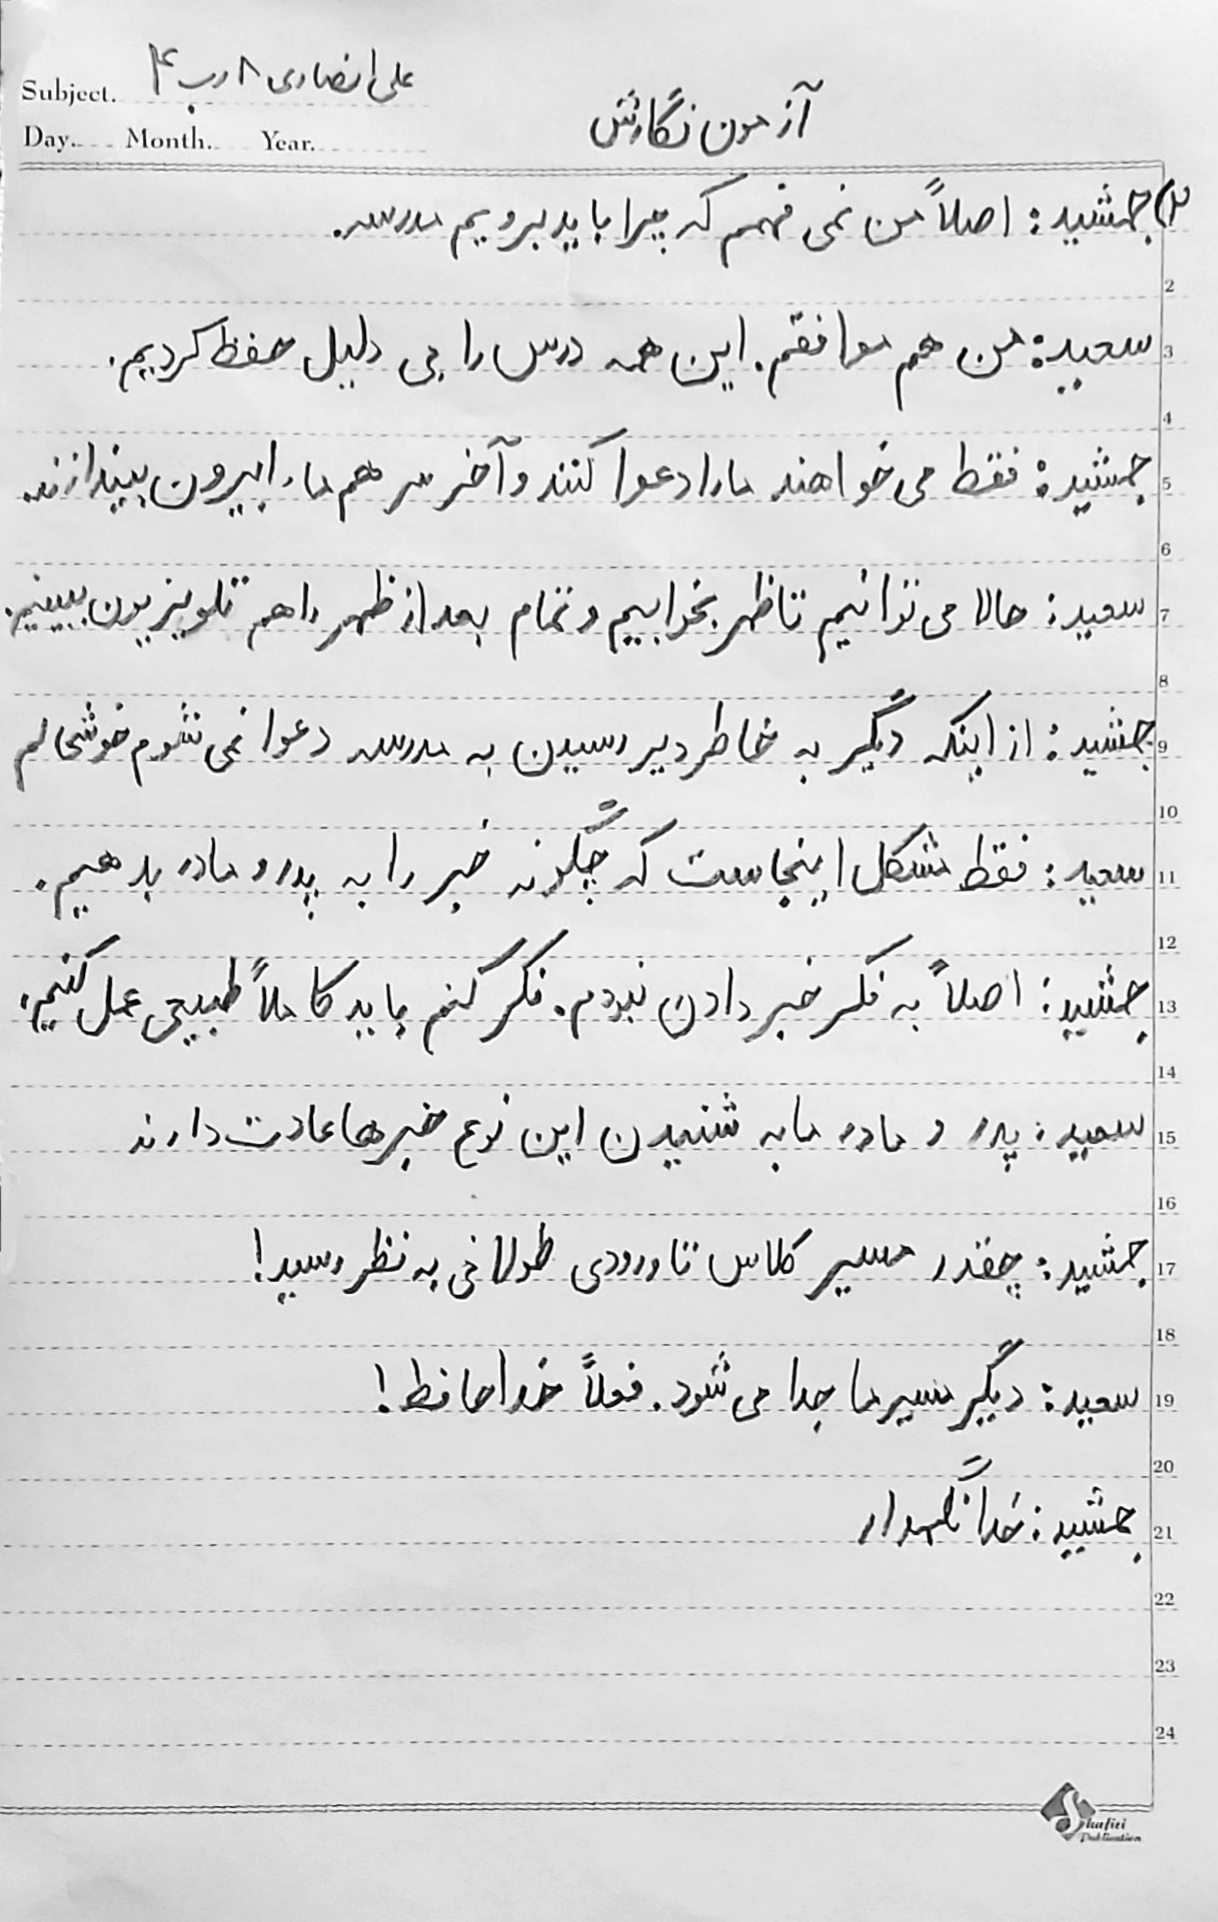 Subject. علی انصاری ۸ رب ۴
آزمون نگارش
Day. Month. Year.
۲) جمشید: اصلاً من نمی فهمم که چرا باید برویم مدرسه.
2
سعید: من هم موافقم. این همه درس را بی دلیل حفظ کردیم. 3
4
جمشید: فقط می خواهند ما را دعوا کنند و آخر سر هم ما را بیرون بیندازند. 5
6
سعید: حالا می توانیم تا ظهر بخوابیم و تمام بعد از ظهر را هم تلویزیون ببینیم. 7
8
جمشید: از اینکه دیگر به خاطر دیر رسیدن به مدرسه دعوا نمی شوم خوشحالم 9
10
سعید: فقط مشکل اینجاست که چگونه خبر را به پدر و مادر بدهیم. 11
12
جمشید: اصلاً به فکر خبر دادن نبودم. فکر کنم باید کاملاً طبیعی عمل کنیم. 13
14
سعید: پدر و مادر ما به شنیدن این نوع خبرها عادت دارند 15
16
جمشید: چقدر مسیر کلاس تا ورودی طولانی به نظر رسید! 17
18
سعید: دیگر مسیر ما جدا می شود. فعلاً خداحافظ! 19
20
جمشید: خدانگهدار 21
22
23
24
Shafiei
Publication